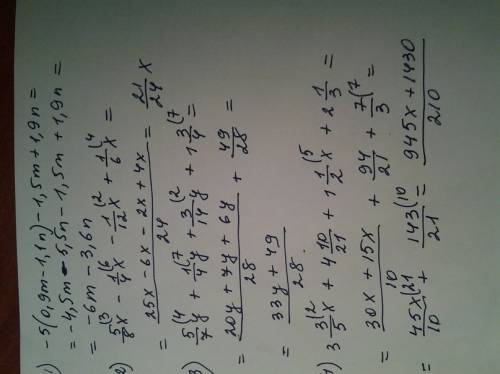 1) -5(0,9m-1,1n)-1,5m+1,9n=
= -4,5m-5,5n-1,5m+1,9n=
= -6m-3,6n
2) 5/8(3 x - 1/4(6 x - 1/12(2 x + 1/6(4 x =
= (25x-6x-2x+4x)/24 = 21/24 x
3) 5/7(4 y + 1/4(7 y + 3/14(2 y + 1 3/4(7 =
= (20y+7y+6y)/28 + 49/28 =
= (33y+49)/28.
4) 3 3/5(2 x + 4 10/21 + 1 1/2(5 x + 2 1/3 =
= (30x+15x)/10 + 94/21 + 7/3(7 =
= 45x/10(21 + 143/21(10 = (945x+1430)/210